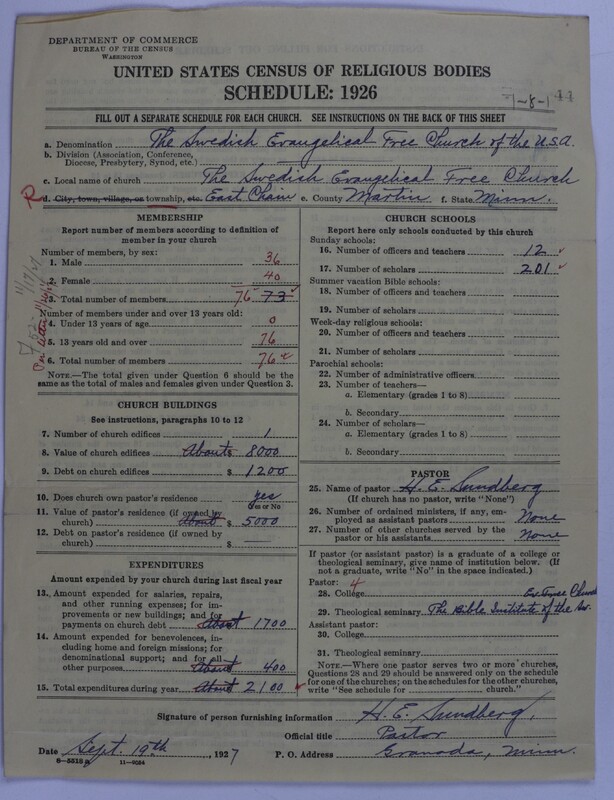 DEPARTMENT OF COMMERCE
BUREAU OF THE CENSUS
WASHINGTON
UNITED STATES CENSUS OF RELIGIOUS BODIES
SCHEDULE: 1926
7-8-1 44
FILL OUT A SEPARATE SCHEDULE FOR EACH CHURCH. SEE INSTRUCTIONS ON THE BACK OF THIS SHEET
a. Denomination The Swedish Evangelical Free Church of the U.S.A.
b. Division (Association, Conference,
Diocese, Presbytery, Synod, etc.)
c. Local name of church The Swedish Evangelical Free Church
R d. City, town, village, or township, etc. East Chain e. County Martin f. State Minn.
MEMBERSHIP
Report number of members according to definition of
member in your church
Number of members, by sex:
1. Male 36
2. Female 40
3. Total number of members 76 73
Number of members under and over 13 years old:
4. Under 13 years of age 0
5. 13 years old and over 76
6. Total number of members 76
NOTE.—The total given under Question 6 should be the
same as the total of males and females given under Question 3.
CHURCH BUILDINGS
See instructions, paragraphs 10 to 12
7. Number of church edifices 1
8. Value of church edifices About $ 8000
9. Debt on church edifices $ 1200
10. Does church own pastor's residence yes
Yes or No
11. Value of pastor's residence (if owned by
church) About $ 5000
12. Debt on pastor's residence (if owned by
church) $ —
EXPENDITURES
Amount expended by your church during last fiscal year
13. Amount expended for salaries, repairs,
and other running expenses; for im-
provements or new buildings; and for
payments on church debt About 1700
14. Amount expended for benevolences, in-
cluding home and foreign missions; for
denominational support; and for all
other purposes About 400
15. Total expenditures during year About 2100
CHURCH SCHOOLS
Report here only schools conducted by this church
Sunday schools:
16. Number of officers and teachers 12
17. Number of scholars 201
Summer vacation Bible schools:
18. Number of officers and teachers
19. Number of scholars
Week-day religious schools:
20. Number of officers and teachers
21. Number of scholars
Parochial schools:
22. Number of administrative officers
23. Number of teachers—
a. Elementary (grades 1 to 8)
b. Secondary
24. Number of scholars—
a. Elementary (grades 1 to 8)
b. Secondary
PASTOR
25. Name of pastor H. E. Sundberg
(If church has no pastor, write "None")
26. Number of ordained ministers, if any, em-
ployed as assistant pastors None
27. Number of other churches served by the
pastor or his assistants None
If pastor (or assistant pastor) is a graduate of a college or
theological seminary, give name of institution below. (If
not a graduate, write "No" in the space indicated.)
Pastor: 4
28. College
Ev. Free Church
29. Theological seminary The Bible Institute of the Sw.
Assistant pastor:
30. College
31. Theological seminary
NOTE.—Where one pastor serves two or more churches,
Questions 28 and 29 should be answered only on the schedule
for one of the churches; on the schedules for the other churches,
write "See schedule for church."
Signature of person furnishing information H. E. Sundberg,
Official title Pastor
Date Sept. 19th, 1927 P. O. Address Granada, Minn.
8-5518a 11-9054